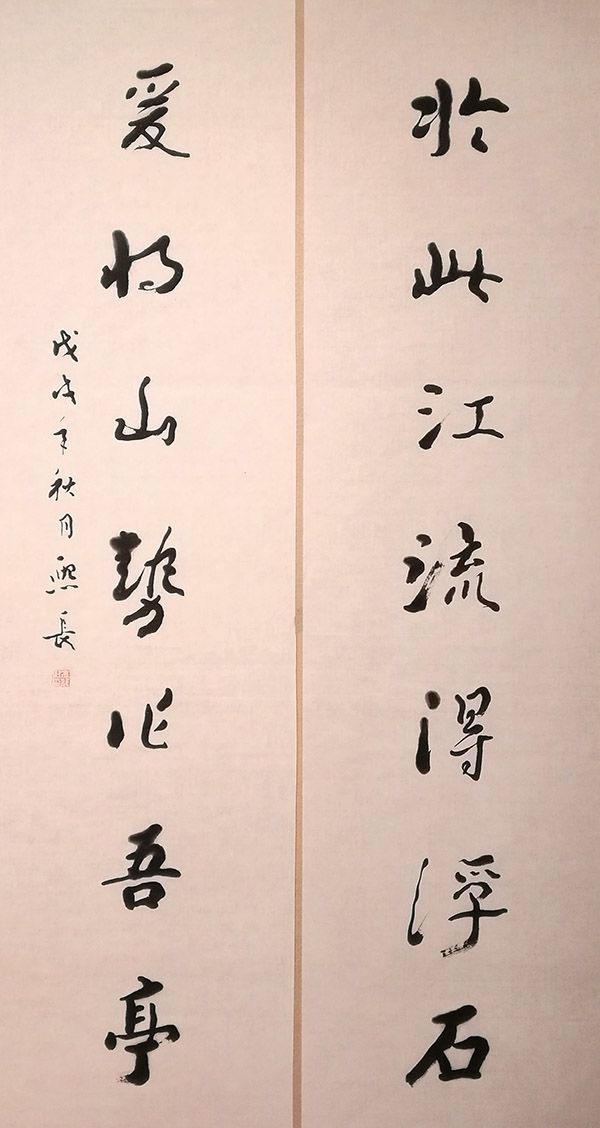 於此江流得浮石
爰將山勢作吾亭
戊戌年秋月熙長